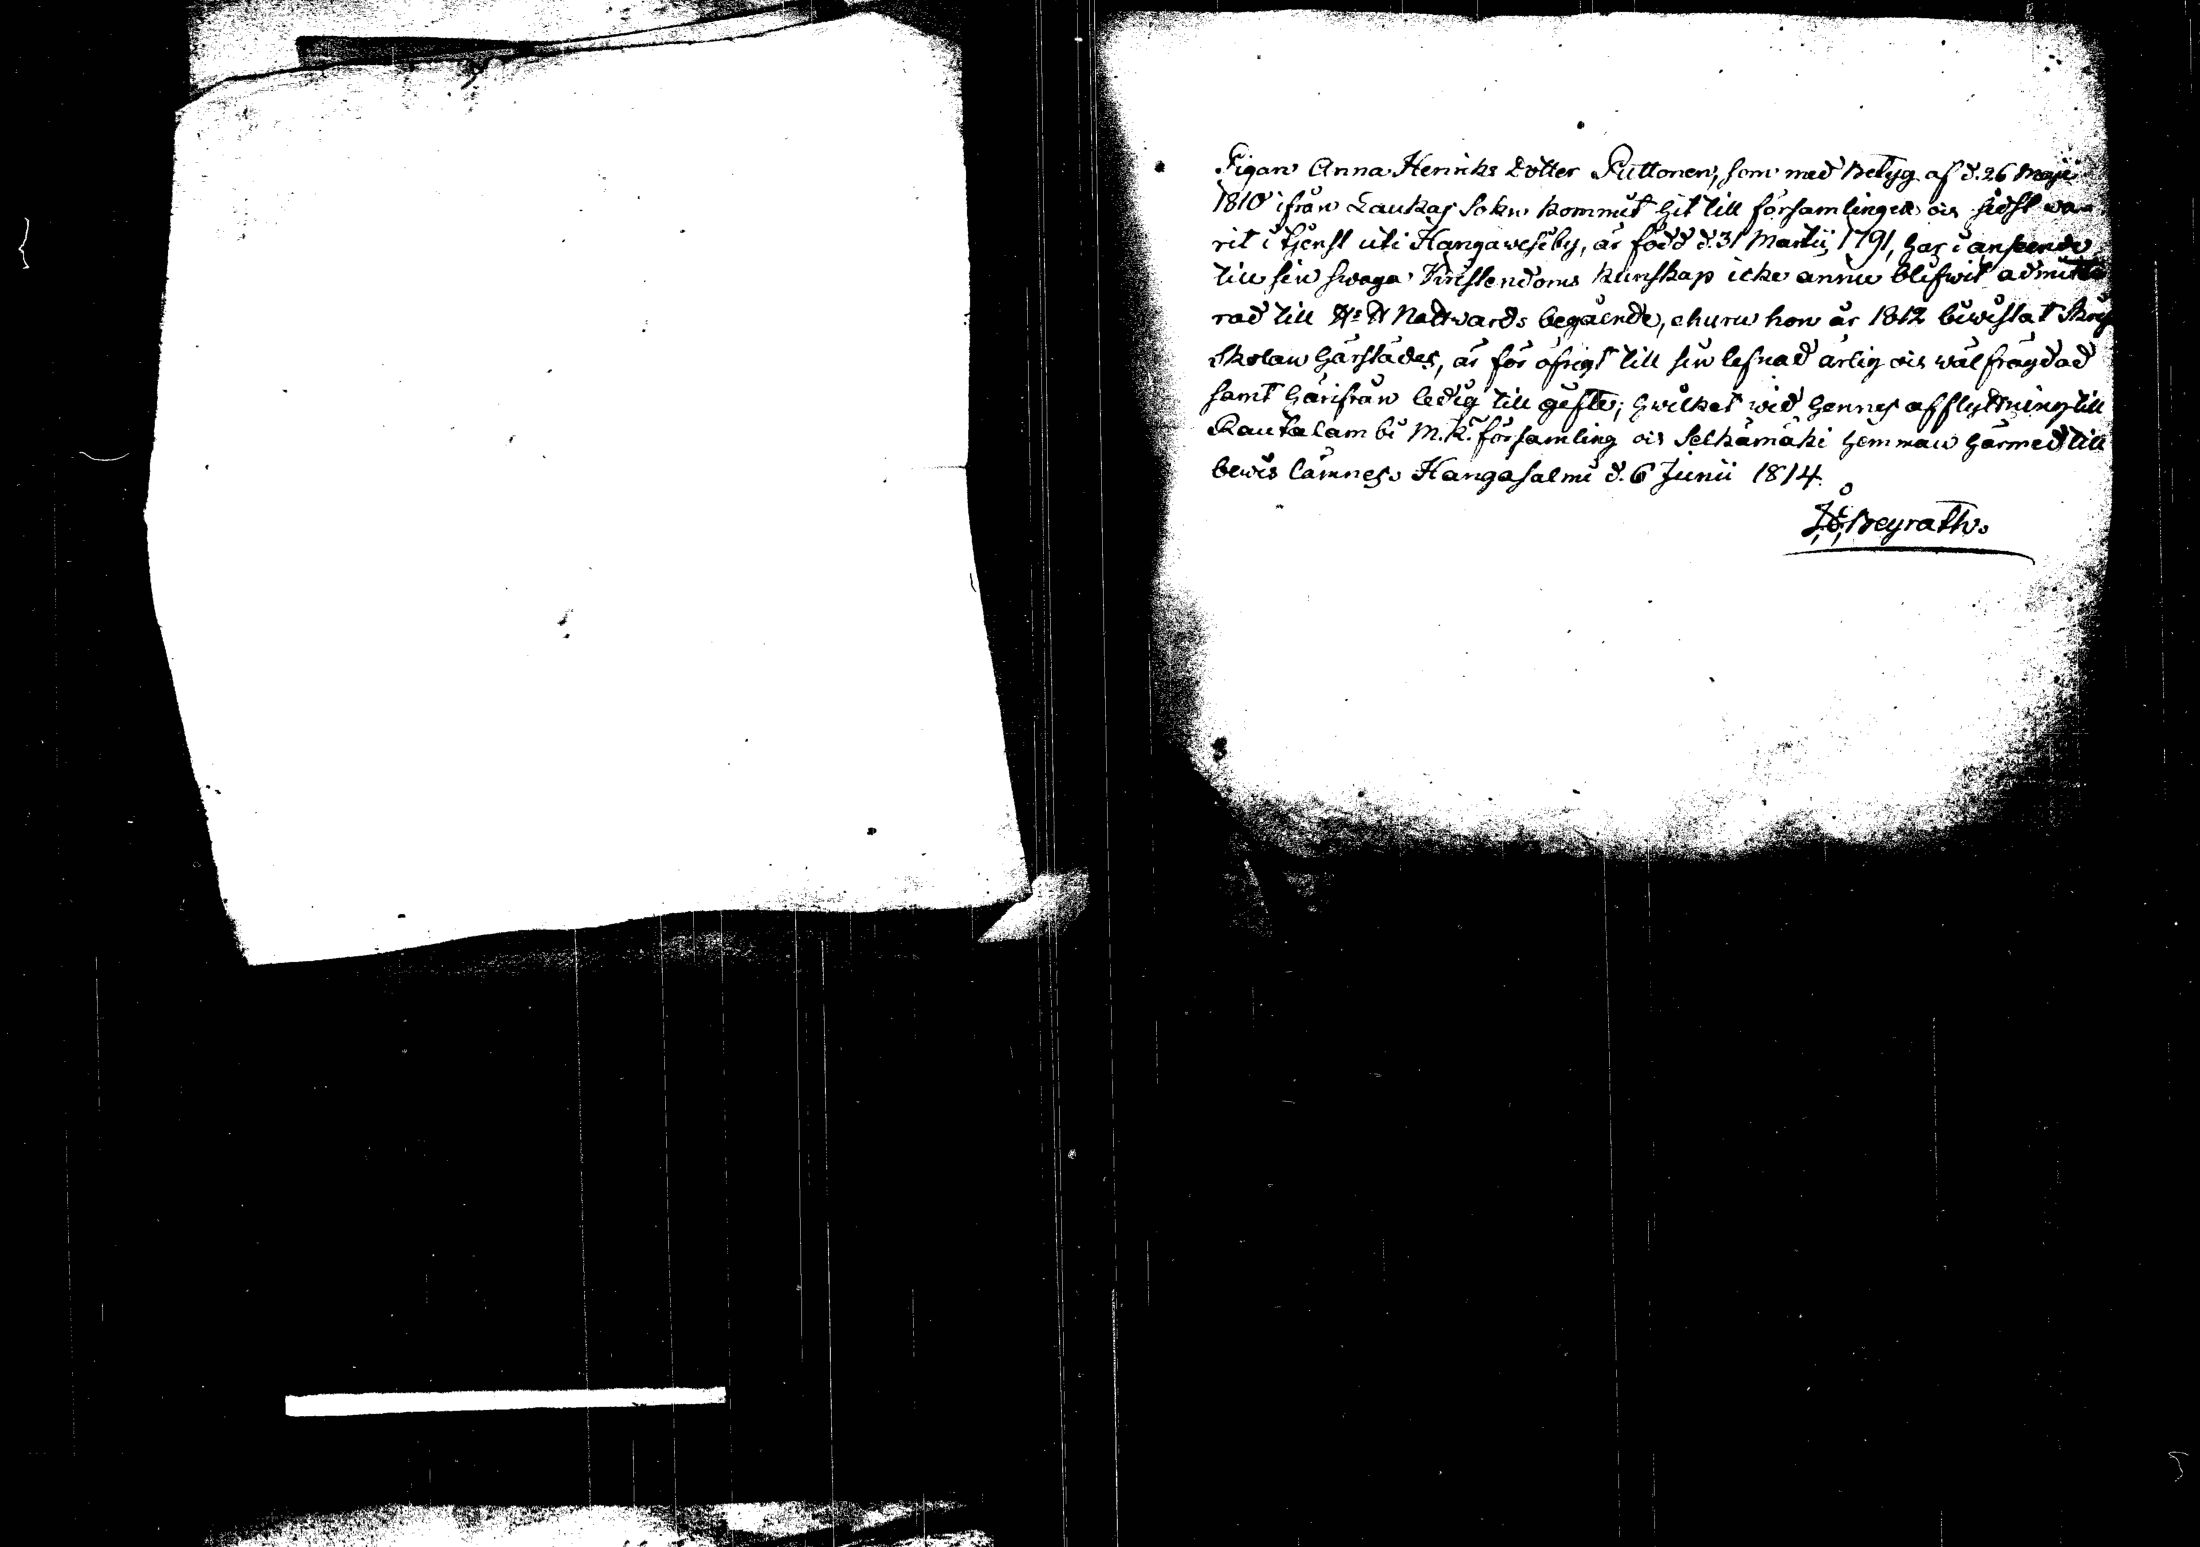 Pigan Anna Henriks dotter Puttonen, som med Betyg af d. 26 Maji
1810 ifrån Laukas Sokn kommit hit till församlingen och sidst wa-
rit i tjenst uti Hangawesi by, är född d. 31 Martii 1791, har i anseende
till sin swaga Kristendoms kunskap icke ännu blifwit admitte-
rad till Hs H Nattwards begående, ehuru hon år 1812 biwistat Skrift
Skolan härstädes, är för öfrigt till sin lefnad ärlig och wälfrägdad
samt härifrån ledig till gifte; hwilket wid hennes afflyttning till
Rautalambi M. K. församling och Selkämäki hemman härmed till
bewis lämnes. Hangasalmi d. 6 Junii 1814.
Beyrath.